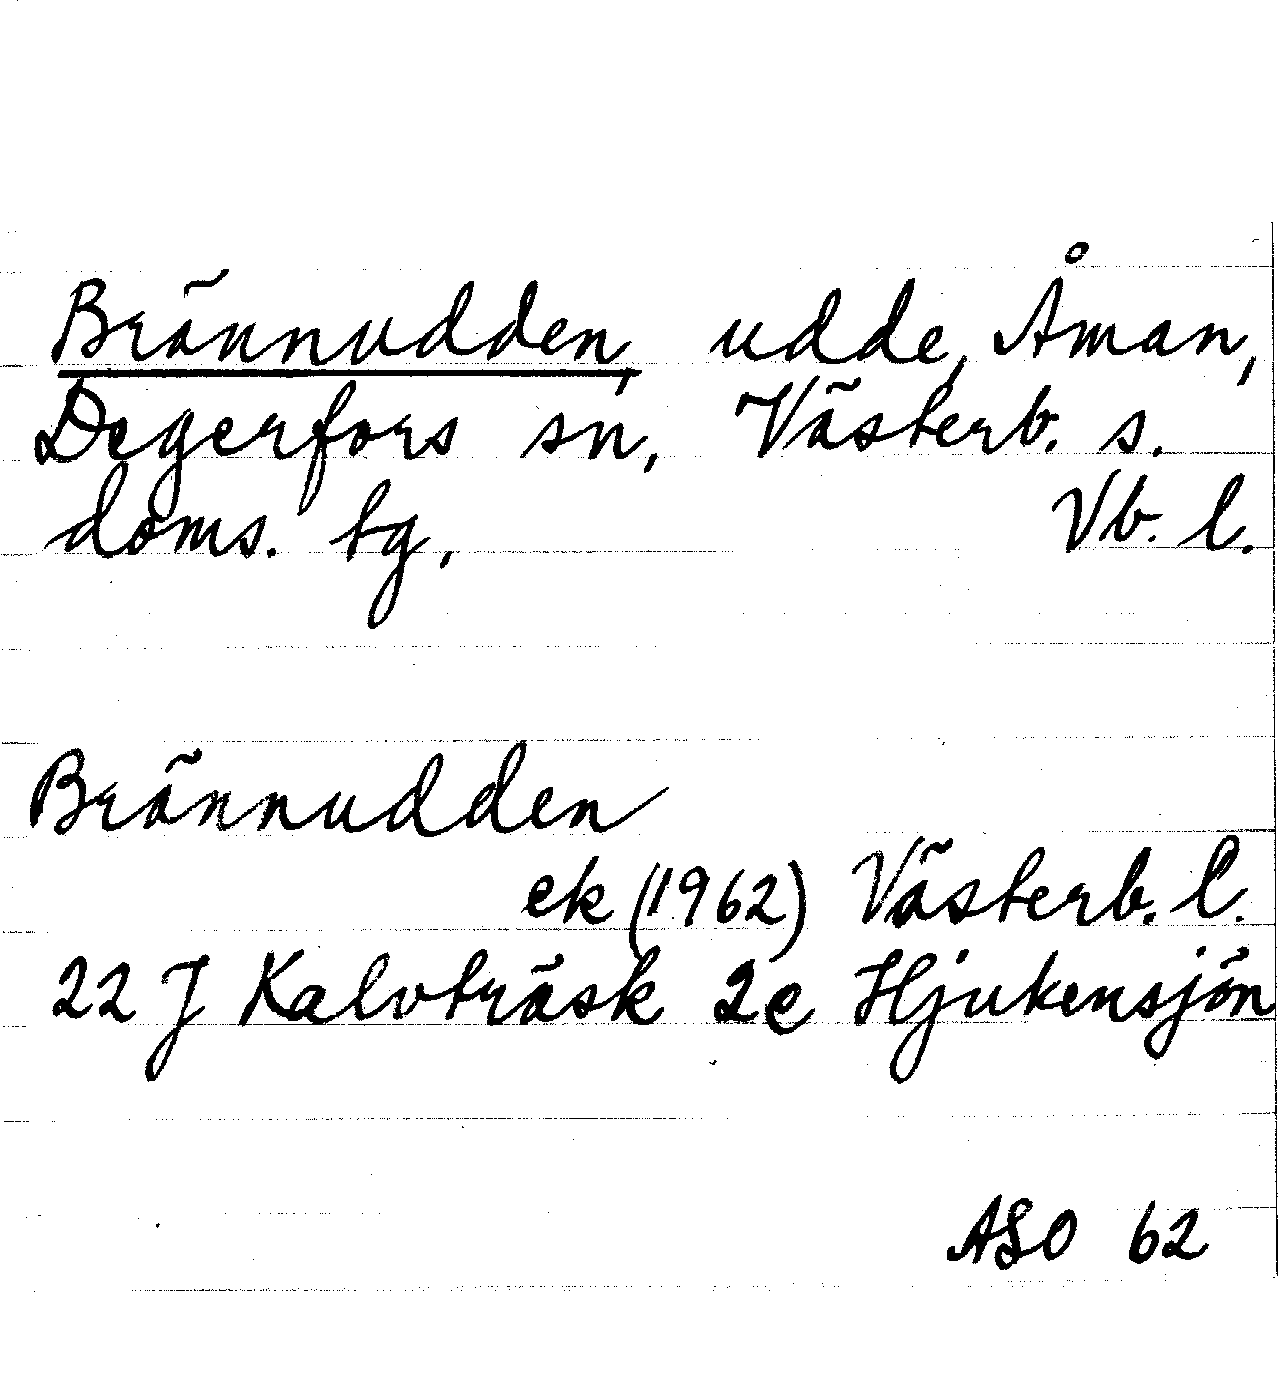 Brännudden, udde, Åman,
Degerfors sn, Västerb. s.
doms. tg, Vb. l.
Brännudden
ek (1962) Västerb. l.
22 J Kalvträsk 2c Hjukensjön
ASO 62